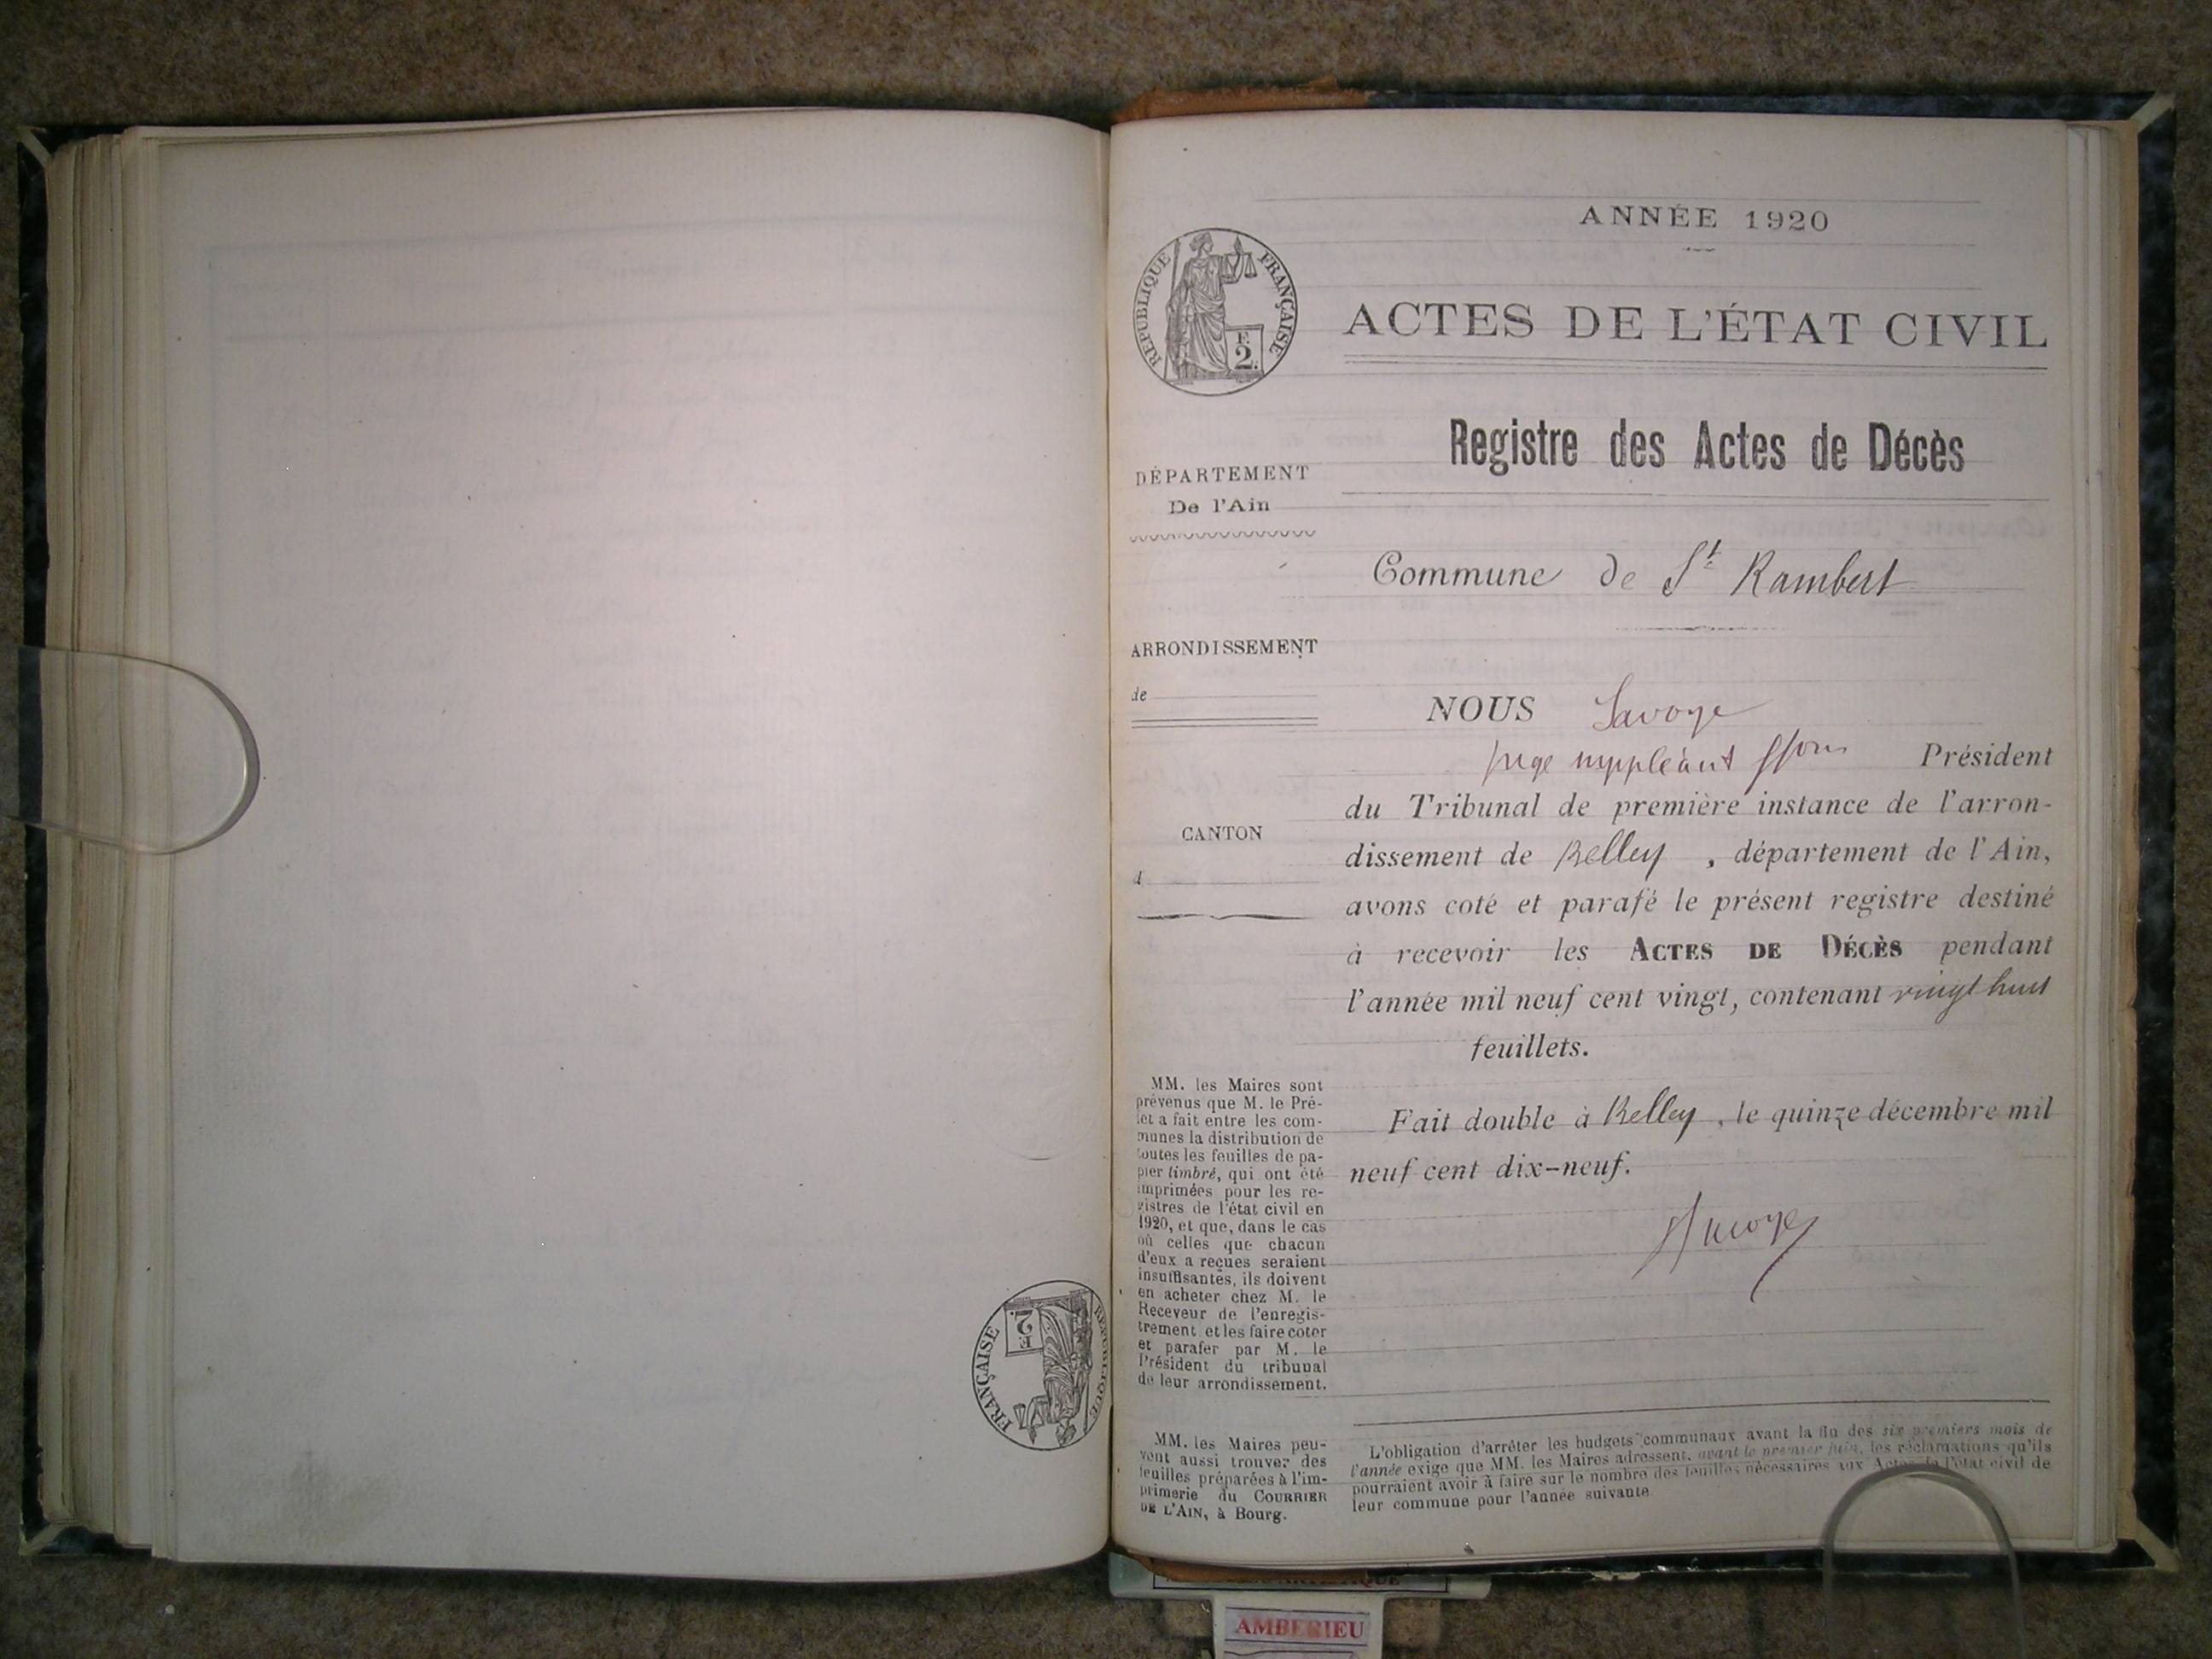 ANNÉE 1920
RÉPUBLIQUE FRANÇAISE
F.
2.
ACTES DE L'ÉTAT CIVIL
Registre des Actes de Décès
DÉPARTEMENT
De l'Ain
Commune de St Rambert
ARRONDISSEMENT
de
CANTON
d
NOUS Savoye
juge suppléant Président
du Tribunal de première instance de l'arron-
dissement de Belley , département de l'Ain,
avons coté et parafé le présent registre destiné
à recevoir les ACTES DE DÉCÈS pendant
l'année mil neuf cent vingt, contenant vingt huit
feuillets.
Fait double à Belley, le quinze décembre mil
neuf cent dix-neuf.
Savoye
MM. les Maires sont
prévenus que M. le Pré-
fet a fait entre les com-
munes la distribution de
toutes les feuilles de pa-
pier timbré, qui ont été
imprimées pour les re-
gistres de l'état civil en
1920, et que, dans le cas
où celles que chacun
d'eux a reçues seraient
insuffisantes, ils doivent
en acheter chez M. le
Receveur de l'enregis-
trement, et les faire coter
et parafer par M. le
Président du tribunal
de leur arrondissement.
MM. les Maires peu-
vent aussi trouver des
feuilles préparées à l'im-
primerie du COURRIER
DE L'AIN, à Bourg.
L'obligation d'arrêter les budgets communaux avant la fin des six premiers mois de
l'année exige que MM. les Maires adressent, avant le premier juin, les réclamations qu'ils
pourraient avoir à faire sur le nombre des feuilles nécessaires aux Actes de l'état civil de
leur commune pour l'année suivante
RÉPUBLIQUE FRANÇAISE
F.
2.
AMBERIEU